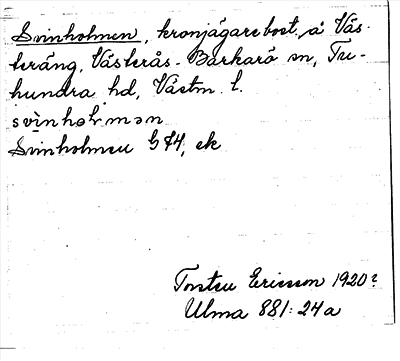 Svinholmen, kronjägarebost. å Väs-
teräng, Västerås-Barkarö sn, Tu-
hundra hd, Västm. l.
svìnhòlmən
Svinholmen G 74, ek
Torsten Ericsson 1920?
Ulma 881:24a